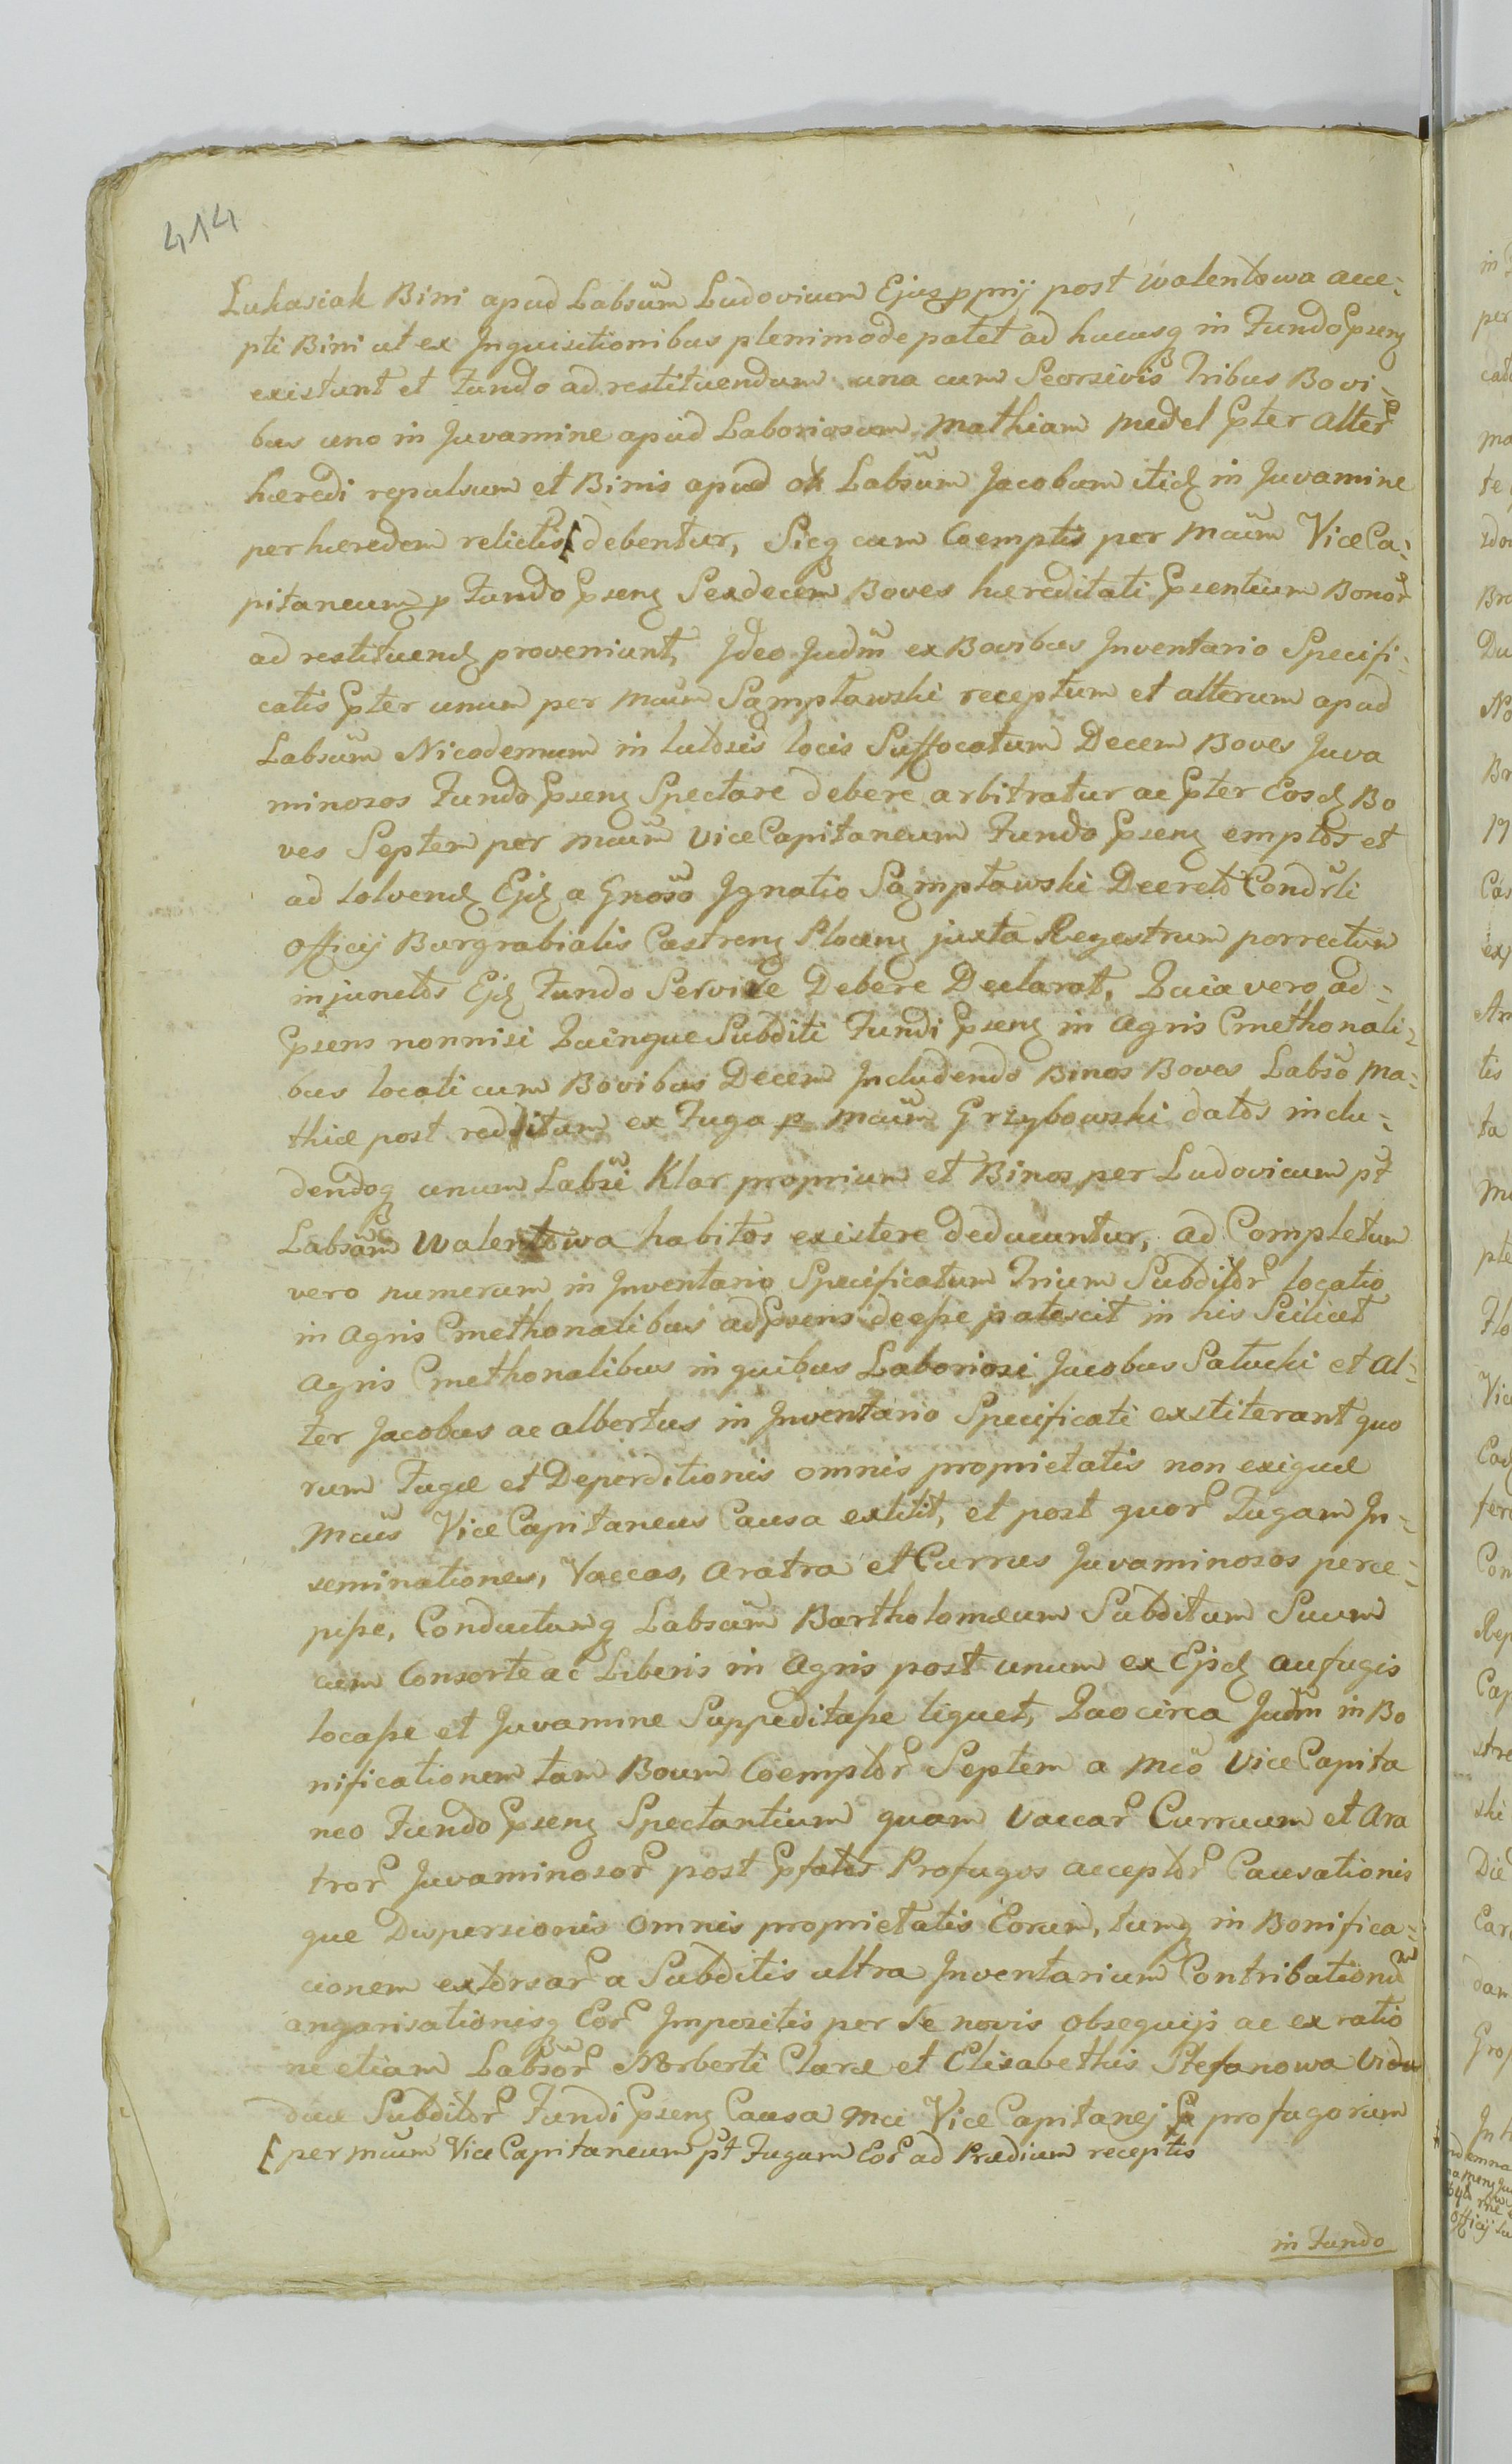 414
Lukasiak Bini apud Labsum Ludovicum Ejusq pprij post Walentowa acce-
pti Bini ut ex Inquisitionibus plenimode patet ad hucusq in Fundo Psenz
existunt et Fundo ad restituendum una cum Seorsivis Tribus Bovi-
bus uno in Juvamine apud Laboriosum Mathiam Medel Pter alter
hæredi repulsum et Binis apud Labsum Jacobum itid in Juvamine
per hæredem relictis [debentur, Sicq cum Coemptis per Mcum ViceCa-
pitaneum p Fundo Psenz Sexdecem Boves hæreditati Psentium Bonor
ad restituend proveniunt, Ideo Judm ex Bovibus Inventario Specifi-
catis Pter unum per Mcum Sampławski receptum et alterum apud
Labsum Nicodemum in lutosis locis Suffocatum Decem Boves Juva
minosos Fundo Psenz Spectare debere arbitratur ac Pter Eosd Bo
ves Septem per Mcum ViceCapitaneum Fundo Psenz emptos et
ad solvend Ejd a Gnoso Ignatio Sampławski Decreto Condrli
Officij Burgrabialis Castrenz Plocenz juxta Regestrum porrectum
injunctos Ejd Fundo Servire Debere Declarat, Quia vero ad-
Psens nonnisi Quinque Subditi Fundi Psenz in Agris Cmethonali-
bus locati cum Bovibus Decem Includendo Binos Boves Labso Ma-
thiæ post redditum ex Fuga p Mcum Grzybowski datos inclu-
dendoq unum Labsi Klar proprium et Binos per Ludovicum pt
Labsam Walentowa habitos existere deducuntur, ad Completum
vero numerum in Inventario Specificatum Trium Subditor locatio
in Agris Cmethonalibus ad Psens deesse patescit in his Scilicet
Agris Cmethonalibus in quibus Laboriosi Jacobus Satucki et Al-
ter Jacobus ac Albertus in Inventario Specificati exstiterant quo
rum Fugæ et Deperditionis omnis proprietatis non exiguæ
Mcus ViceCapitaneus Causa extitit, et post quor Fugam In-
seminationes, Vaccas, Aratra et Currus Juvaminosos perce-
pisse, Conductumq Labsum Bartholomæum Subditum Suum
cum Consorte ac Liberis in Agris post unum ex Ejsd aufugis
locasse et Juvamine Suppeditasse liquet, Quocirca Judm in Bo
nificationem tam Boum Coemptor Septem a Mco ViceCapita
neo Fundo Psenz Spectantium quam Vaccar Curruum et Ara
tror Juvaminosor post Pfatos Profugos acceptor Causationis
que Dispersionis omnis proprietatis Eorum, tumq in Bonifica-
cionem extorsar a Subditis ultra Inventarium Contributionu
angarisationisq Eor Impositis per Se novis obsequijs ac ex ratio
ne etiam Labsor Norberti Claræ et Elisabethis Stefanowa Vidu
duæ Subditor Fundi Psenz Causa Mci ViceCapitanej profugorum
[per Mcum ViceCapitaneum pt Fugam Eor ad Prædium receptis
in Fundo